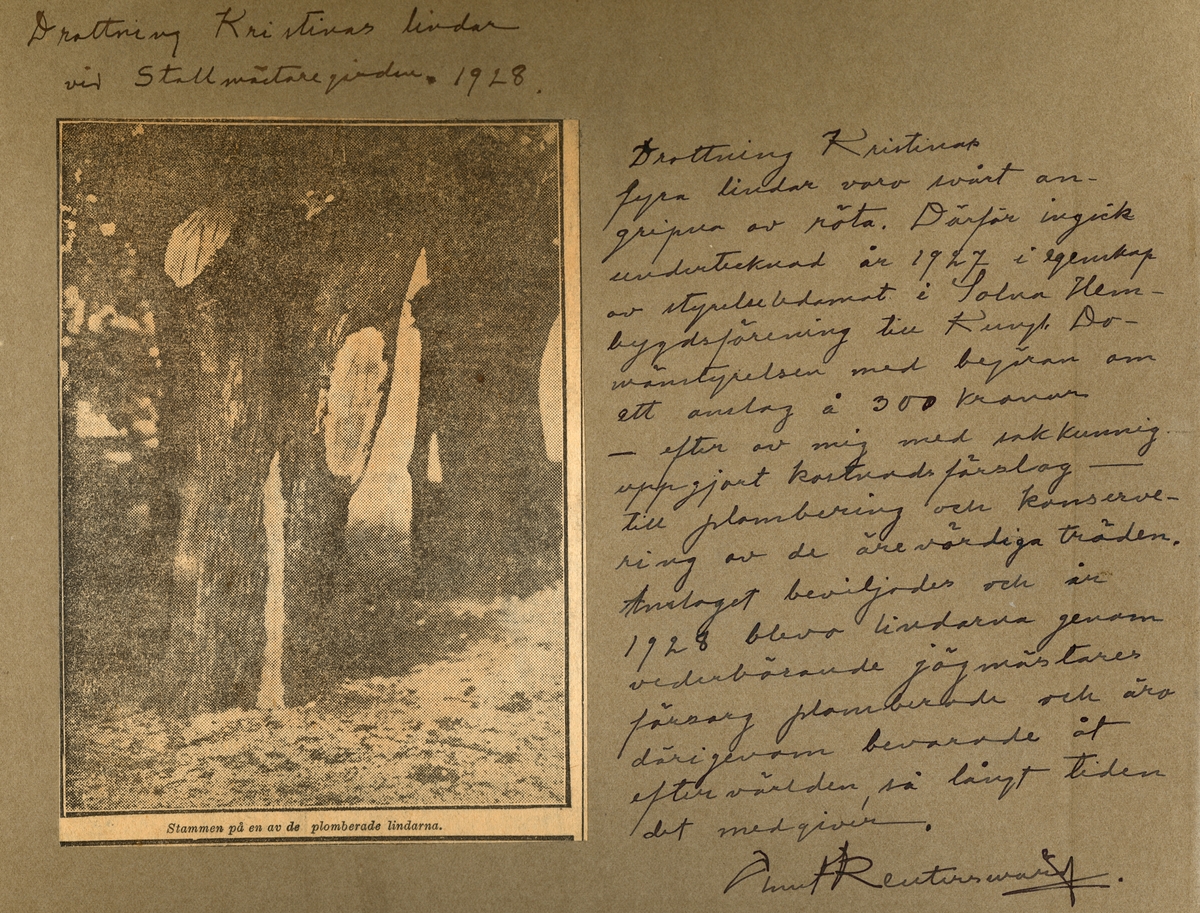 Drottning Kristinas lindar
vid Stallmästaregården. 1928.
Stammen på en av de plomberade lindarna.
Drottning Kristinas
fyra lindar voro svårt an-
gripna av röta. Därför ingick
undertecknad år 1927 i egenskap
av styrelseledamot i Solna Hem-
bygdsförening till Kungl. Do-
mänstyrelsen med begäran om
ett anslag å 300 kronor
— efter av mig med sakkunnig
uppgjort kostnadsförslag —
till plombering och konserve-
ring av de ärevördiga träden.
Anslaget beviljades och år
1928 blevo lindarna genom
vederbörande jägmästares
försorg plomberade och äro
därigenom bevarade åt
eftervärlden, så långt tiden
det medgiver.
Knut Reuterswärd.